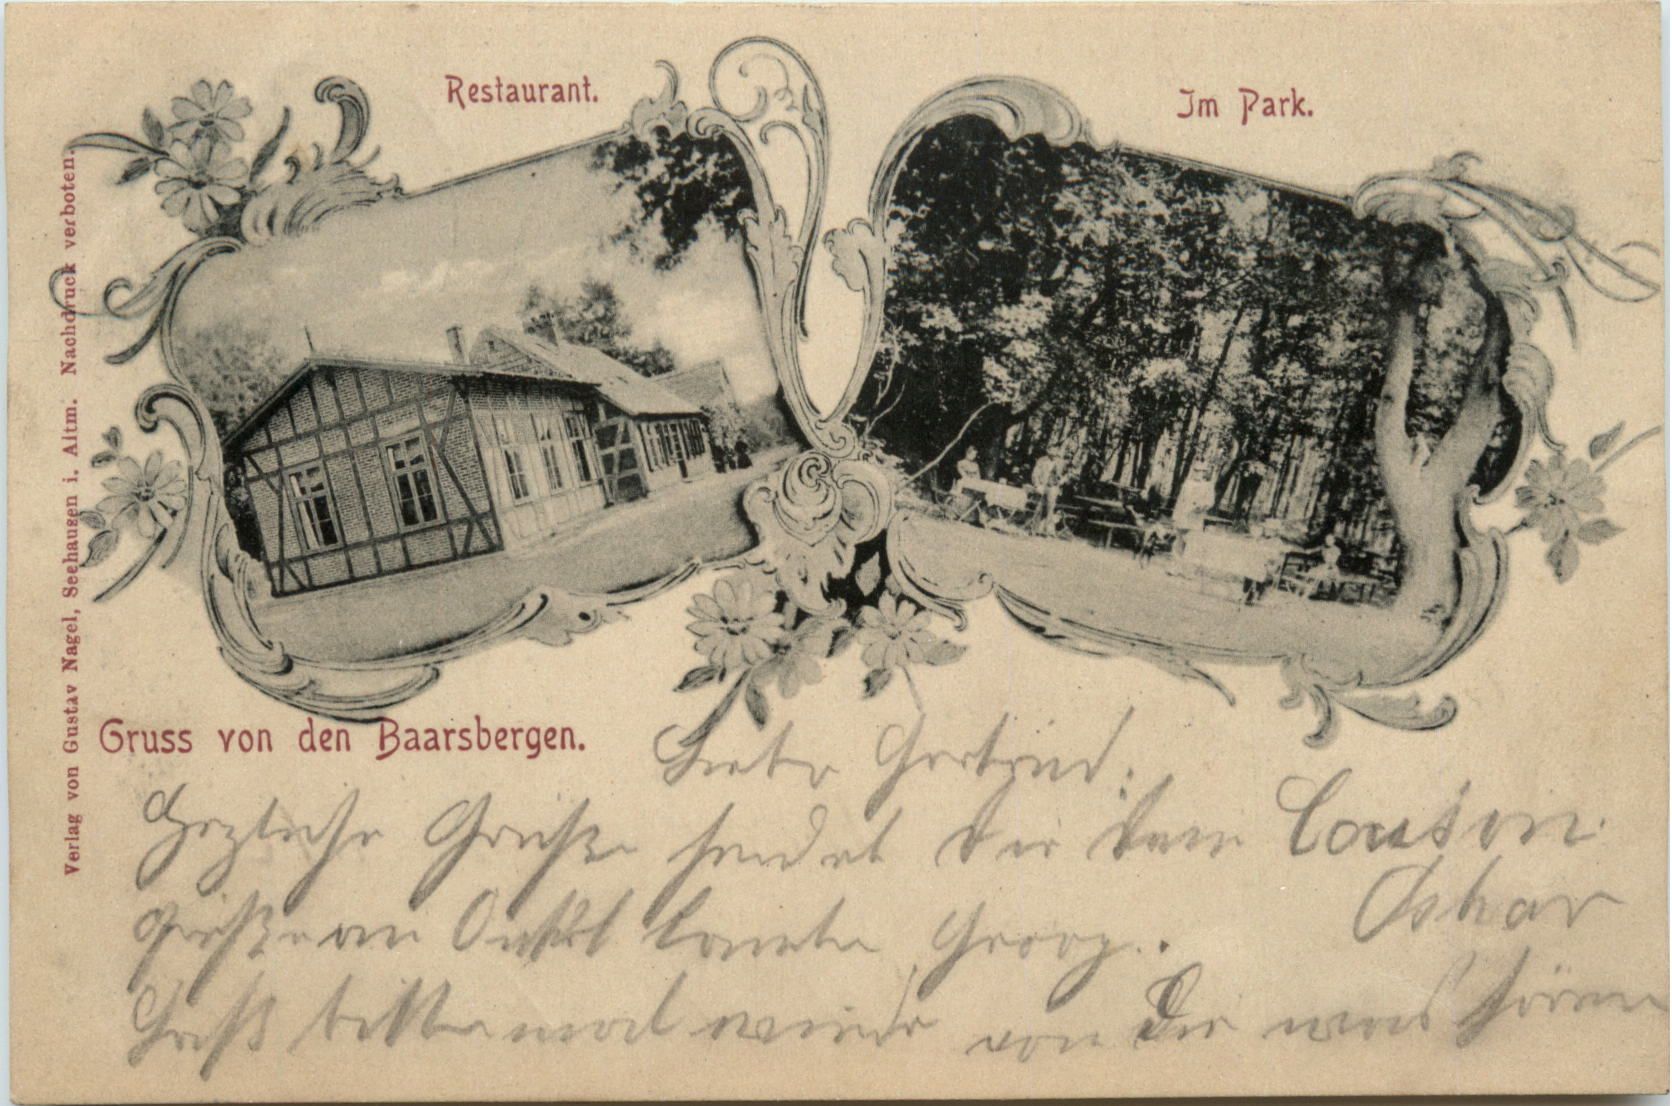 Restaurant.
Im Park.
Verlag von Gustav Nagel, Seehausen i. Altm. Nachdruck verboten.
Gruss von den Baarsbergen.
Liebe Gertrud!
Herzliche Grüße sendet Dir Dein Cousin
Oskar
Grüße an Onkel Georg.
bitte mal wieder von Dir was hören